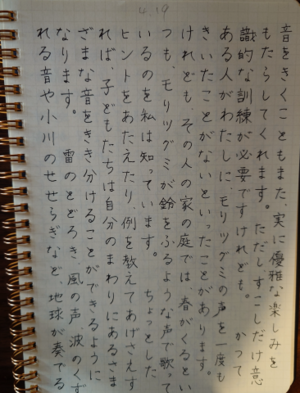 4.19
音をきくこともまた、実に優雅な楽しみを
もたらしてくれます。ただし、すこしだけ意
識的な訓練が必要ですけれども。 かつて
ある人がわたしに、モリツグミの声を一度も
きいたことがないといったことがあります。
けれども、その人の家の庭では春がくるとい
つも、モリツグミが鈴をふるような声で歌って
いるのを私は知っています。 ちょっとした
ヒントをあたえたり、例を教えてあげさえす
れば、子どもたちは自分のまわりにあるさま
ざまな音をきき分けることができるように
なります。 雷のとどろき、風の声、波のくず
れる音や小川のせせらぎなど、地球が奏でる